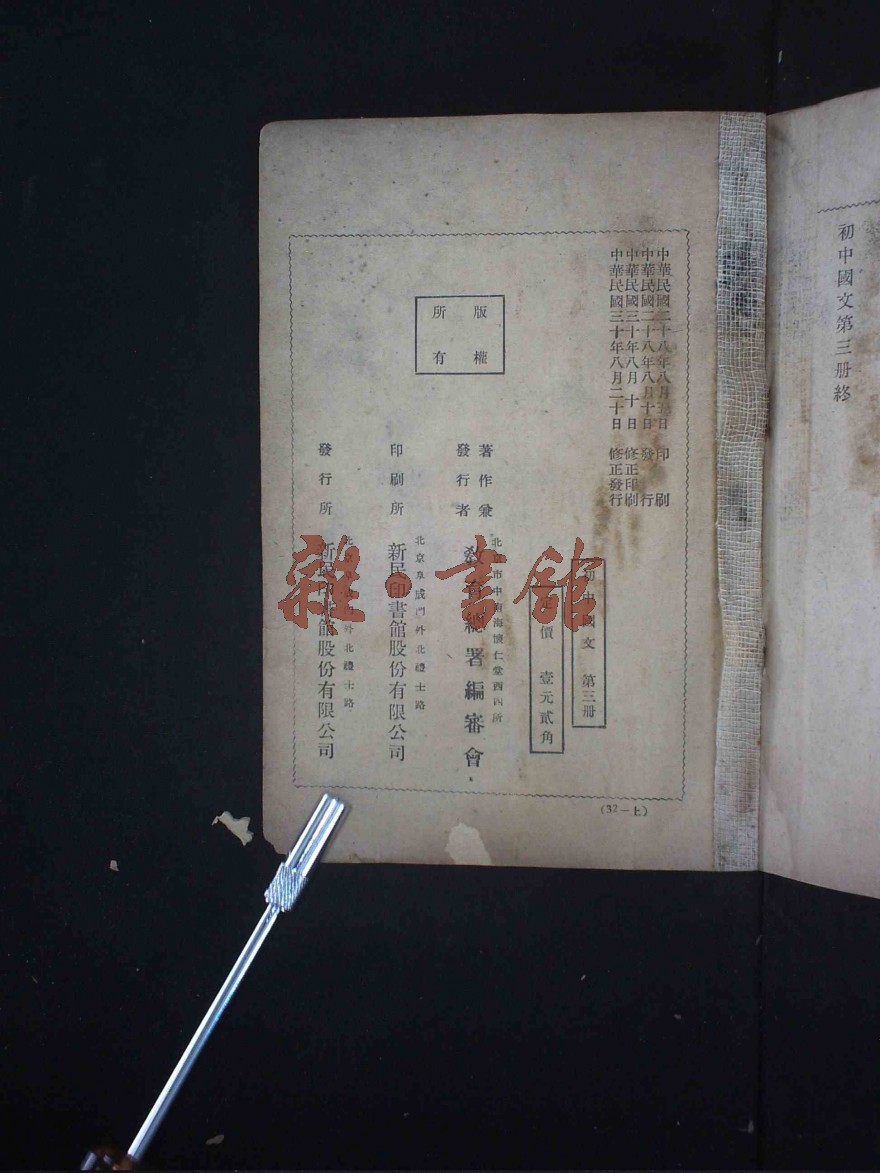 初中國文第三册終
中華民國二十八年八月五日 印刷
中華民國二十八年八月十日 發行
中華民國三十年八月十日 修正印刷
中華民國三十年八月二十日 修正發行
初中國文 第三册
價 壹元貳角
版權
所有
北京市中南海懷仁堂西四所
著作兼
發行者
教育總署編審會
北京阜成門外北禮士路
印刷所 新民印書館股份有限公司
外北禮士路
發行所 新民印書館股份有限公司
(32—上)
雜·書館